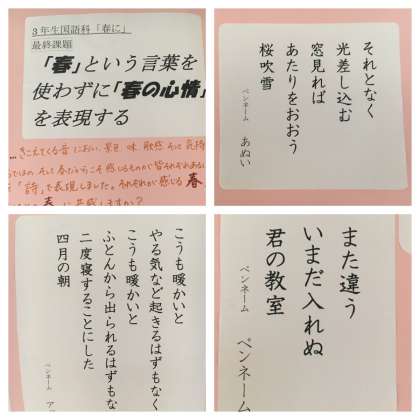 3年生国語科「春に」
最終課題
「春」という言葉を
使わずに「春の心情」
を表現する
…きこえてくる音、におい、景色、味、触感、そして気持
「詩」で表現しました。それぞれが感じる春
春に共感しますか？
それとなく
光差し込む
窓見れば
あたりをおおう
桜吹雪
ペンネーム　あぬい
こうも暖かいと
やる気など起きるはずもなく
こうも暖かいと
ふとんから出られるはずもな
二度寝することにした
四月の朝
ペンネーム　ア
また違う
いまだ入れぬ
君の教室
ペンネーム　ペンネーム